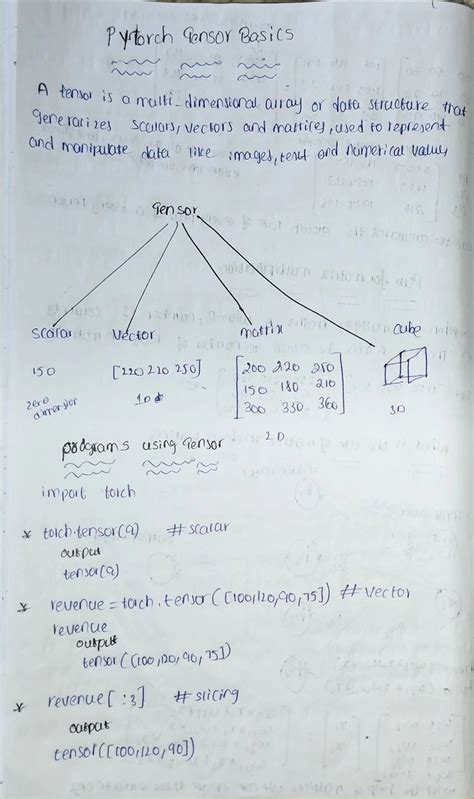 Pytorch Tensor Basics
A tensor is a multi-dimensional array or data structure that
generalizes scalars, vectors and matrices, used to represent
and manipulate data like images, text and numerical values
Tensor
scalar vector matrix cube
150 [220 210 250] [200 220 250
150 180 210
300 330 360] 3D
zero dimension 1D
2D
programs using Tensor
import torch
* torch.tensor(9) #scalar
output
tensor(9)
* revenue = torch.tensor([100,120,90,75]) #vector
revenue
output
tensor([100,120,90,75])
* revenue[:3] #slicing
output
tensor([100,120,90])